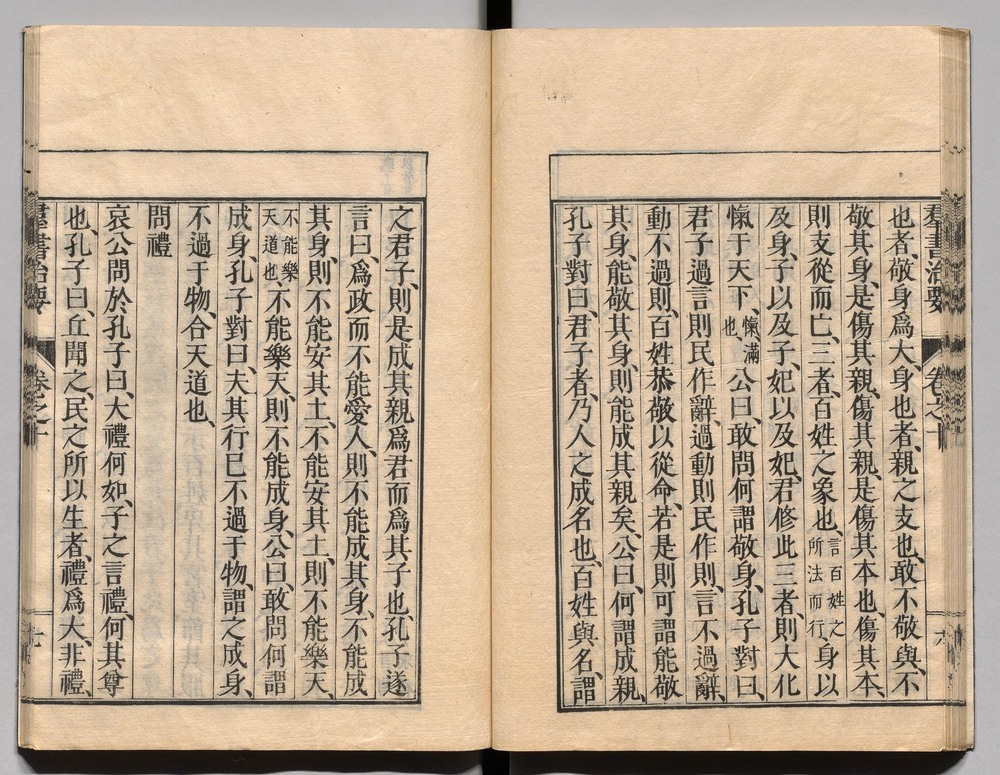 羣書治要 卷之十 六
也者、敬身爲大、身也者、親之支也、敢不敬與、不
敬其身、是傷其親、傷其親、是傷其本也、傷其本、
則支從而亡、三者、百姓之象也、言百姓之所法而行、身以
及身、子以及子、妃以及妃、君修此三者、則大化
愾于天下、愾滿也、公曰、敢問何謂敬身、孔子對曰、
君子過言則民作辭、過動則民作則、言不過辭、
動不過則、百姓恭敬以從命、若是則可謂能敬
其身、能敬其身、則能成其親矣、公曰、何謂成親、
孔子對曰、君子者、乃人之成名也、百姓與名、謂
之君子、則是成其親爲君而爲其子也、孔子遂
言曰、爲政而不能愛人、則不能成其身、不能成
其身、則不能安其土、不能安其土、則不能樂天、
不能樂天道也、不能樂天、則不能成身、公曰、敢問何謂
成身、孔子對曰、夫其行已不過于物、謂之成身、
不過于物、合天道也、
問禮
哀公問於孔子曰、大禮何如、子之言禮、何其尊
也、孔子曰、丘聞之、民之所以生者、禮爲大、非禮、
羣書治要 卷之十 七